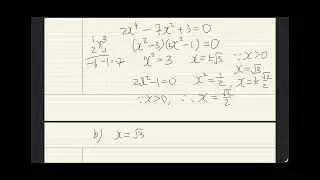 2x⁴ - 7x² + 3 = 0
(x² - 3)(2x² - 1) = 0
1 3
2 1
-6 -1 = 7
x² = 3 x = ±√3 ∵ x > 0
x = √3
2x² - 1 = 0 x² = 1/2, x = ± √2/2
∵ x > 0, ∴ x = √2/2
b) x = √3